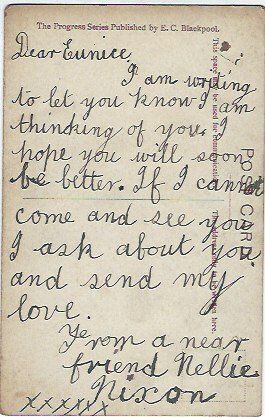 The Progress Series Published by E. C. Blackpool.
Dear Eunice,
I am writing
to let you know I am
thinking of you. I
hope you will soon
be better. If I cannot
come and see you
I ask about you
and send my
love.
From a near
friend Nellie
Nixon
xxxxxx
This space may be used for communication
POST CARD
The address only to be written here.